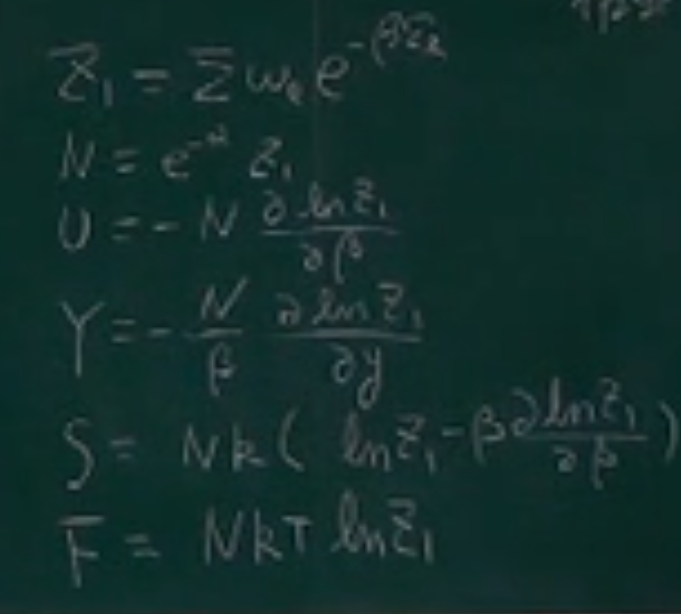 Z₁ = Σ ωₑ e^{-βεₑ}
N = e^{-α} Z₁
U = - N ∂ ln Z₁ / ∂β
Y = - N/β ∂ ln Z₁ / ∂y
S = Nk ( ln Z₁ - β ∂ ln Z₁ / ∂β )
F = NkT ln Z₁